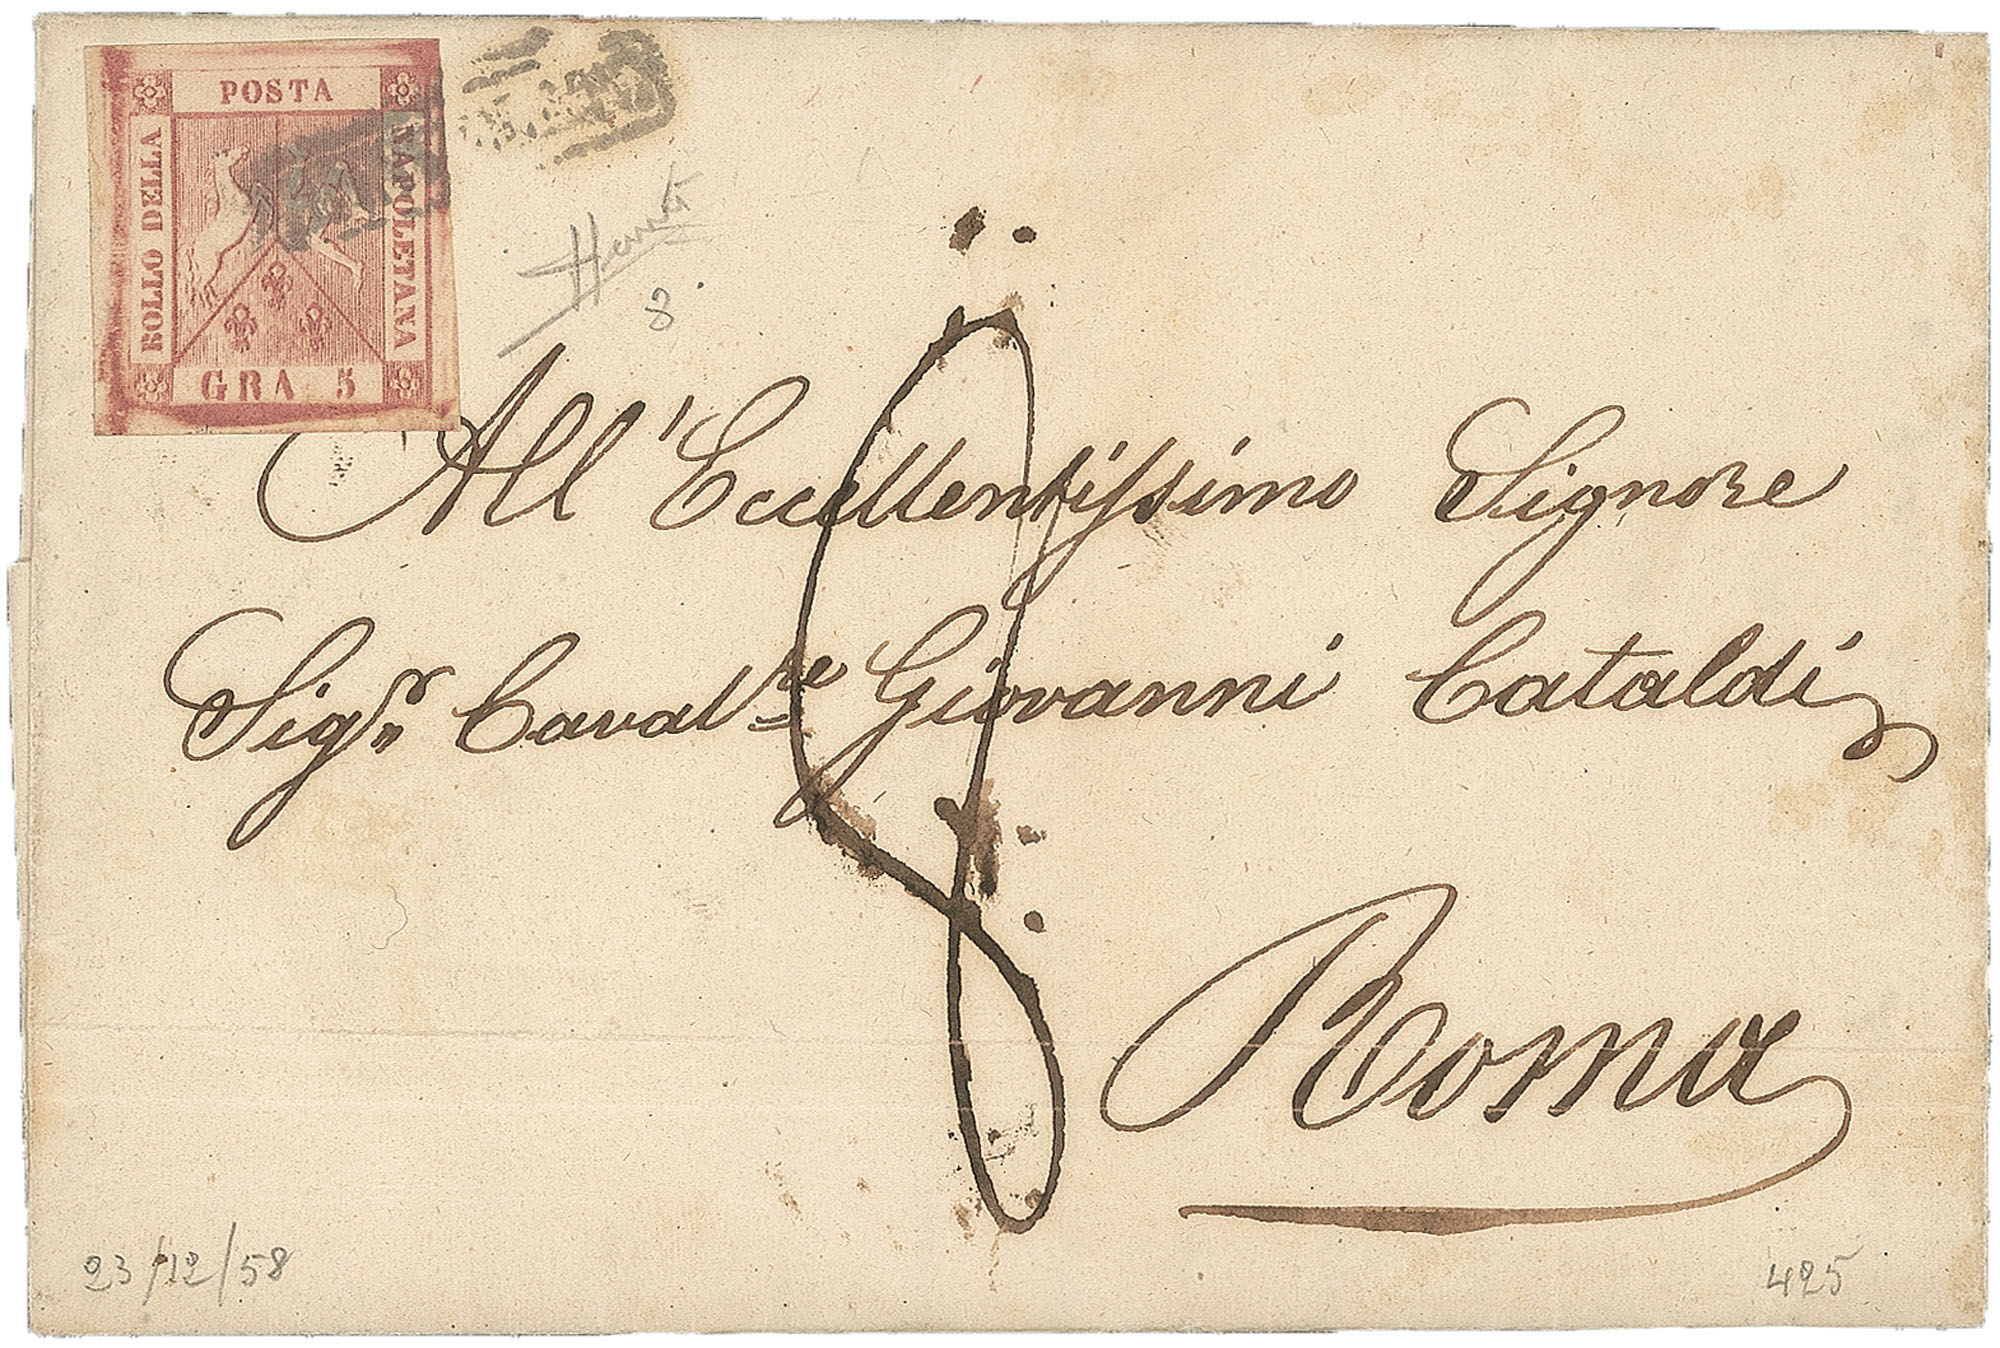 POSTA
BOLLO DELLA
NAPOLETANA
GRA 5
8
8
All'Eccellentissimo Signore
Sigr. Cavalre Giovanni Cataldi
Roma
23/12/58
425